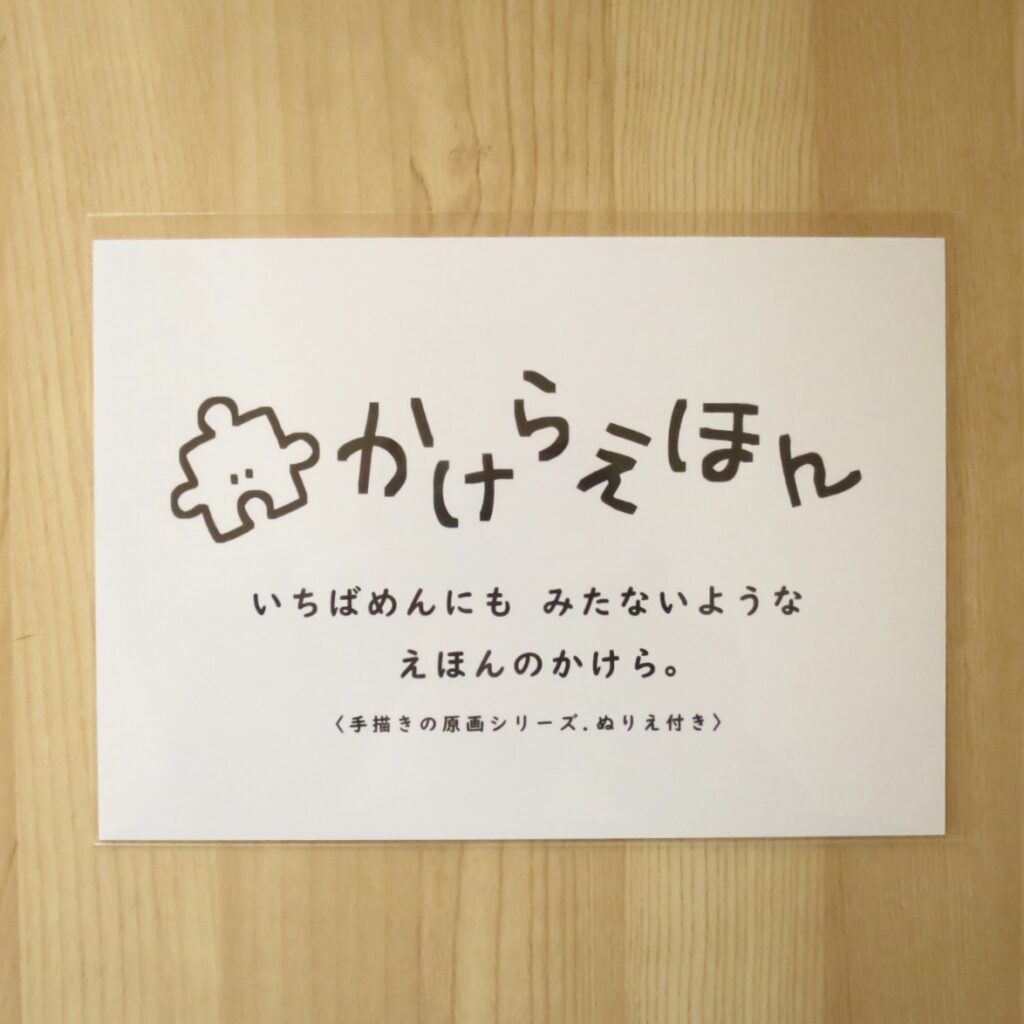 かけらえほん
いちばめんにも みたないような
えほんのかけら。
〈手描きの原画シリーズ.ぬりえ付き〉